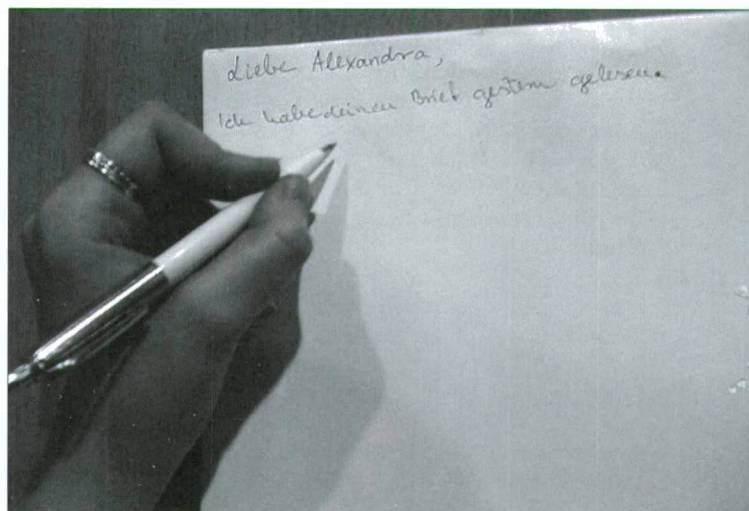 Liebe Alexandra,
Ich habe deinen Brief gestern gelesen.